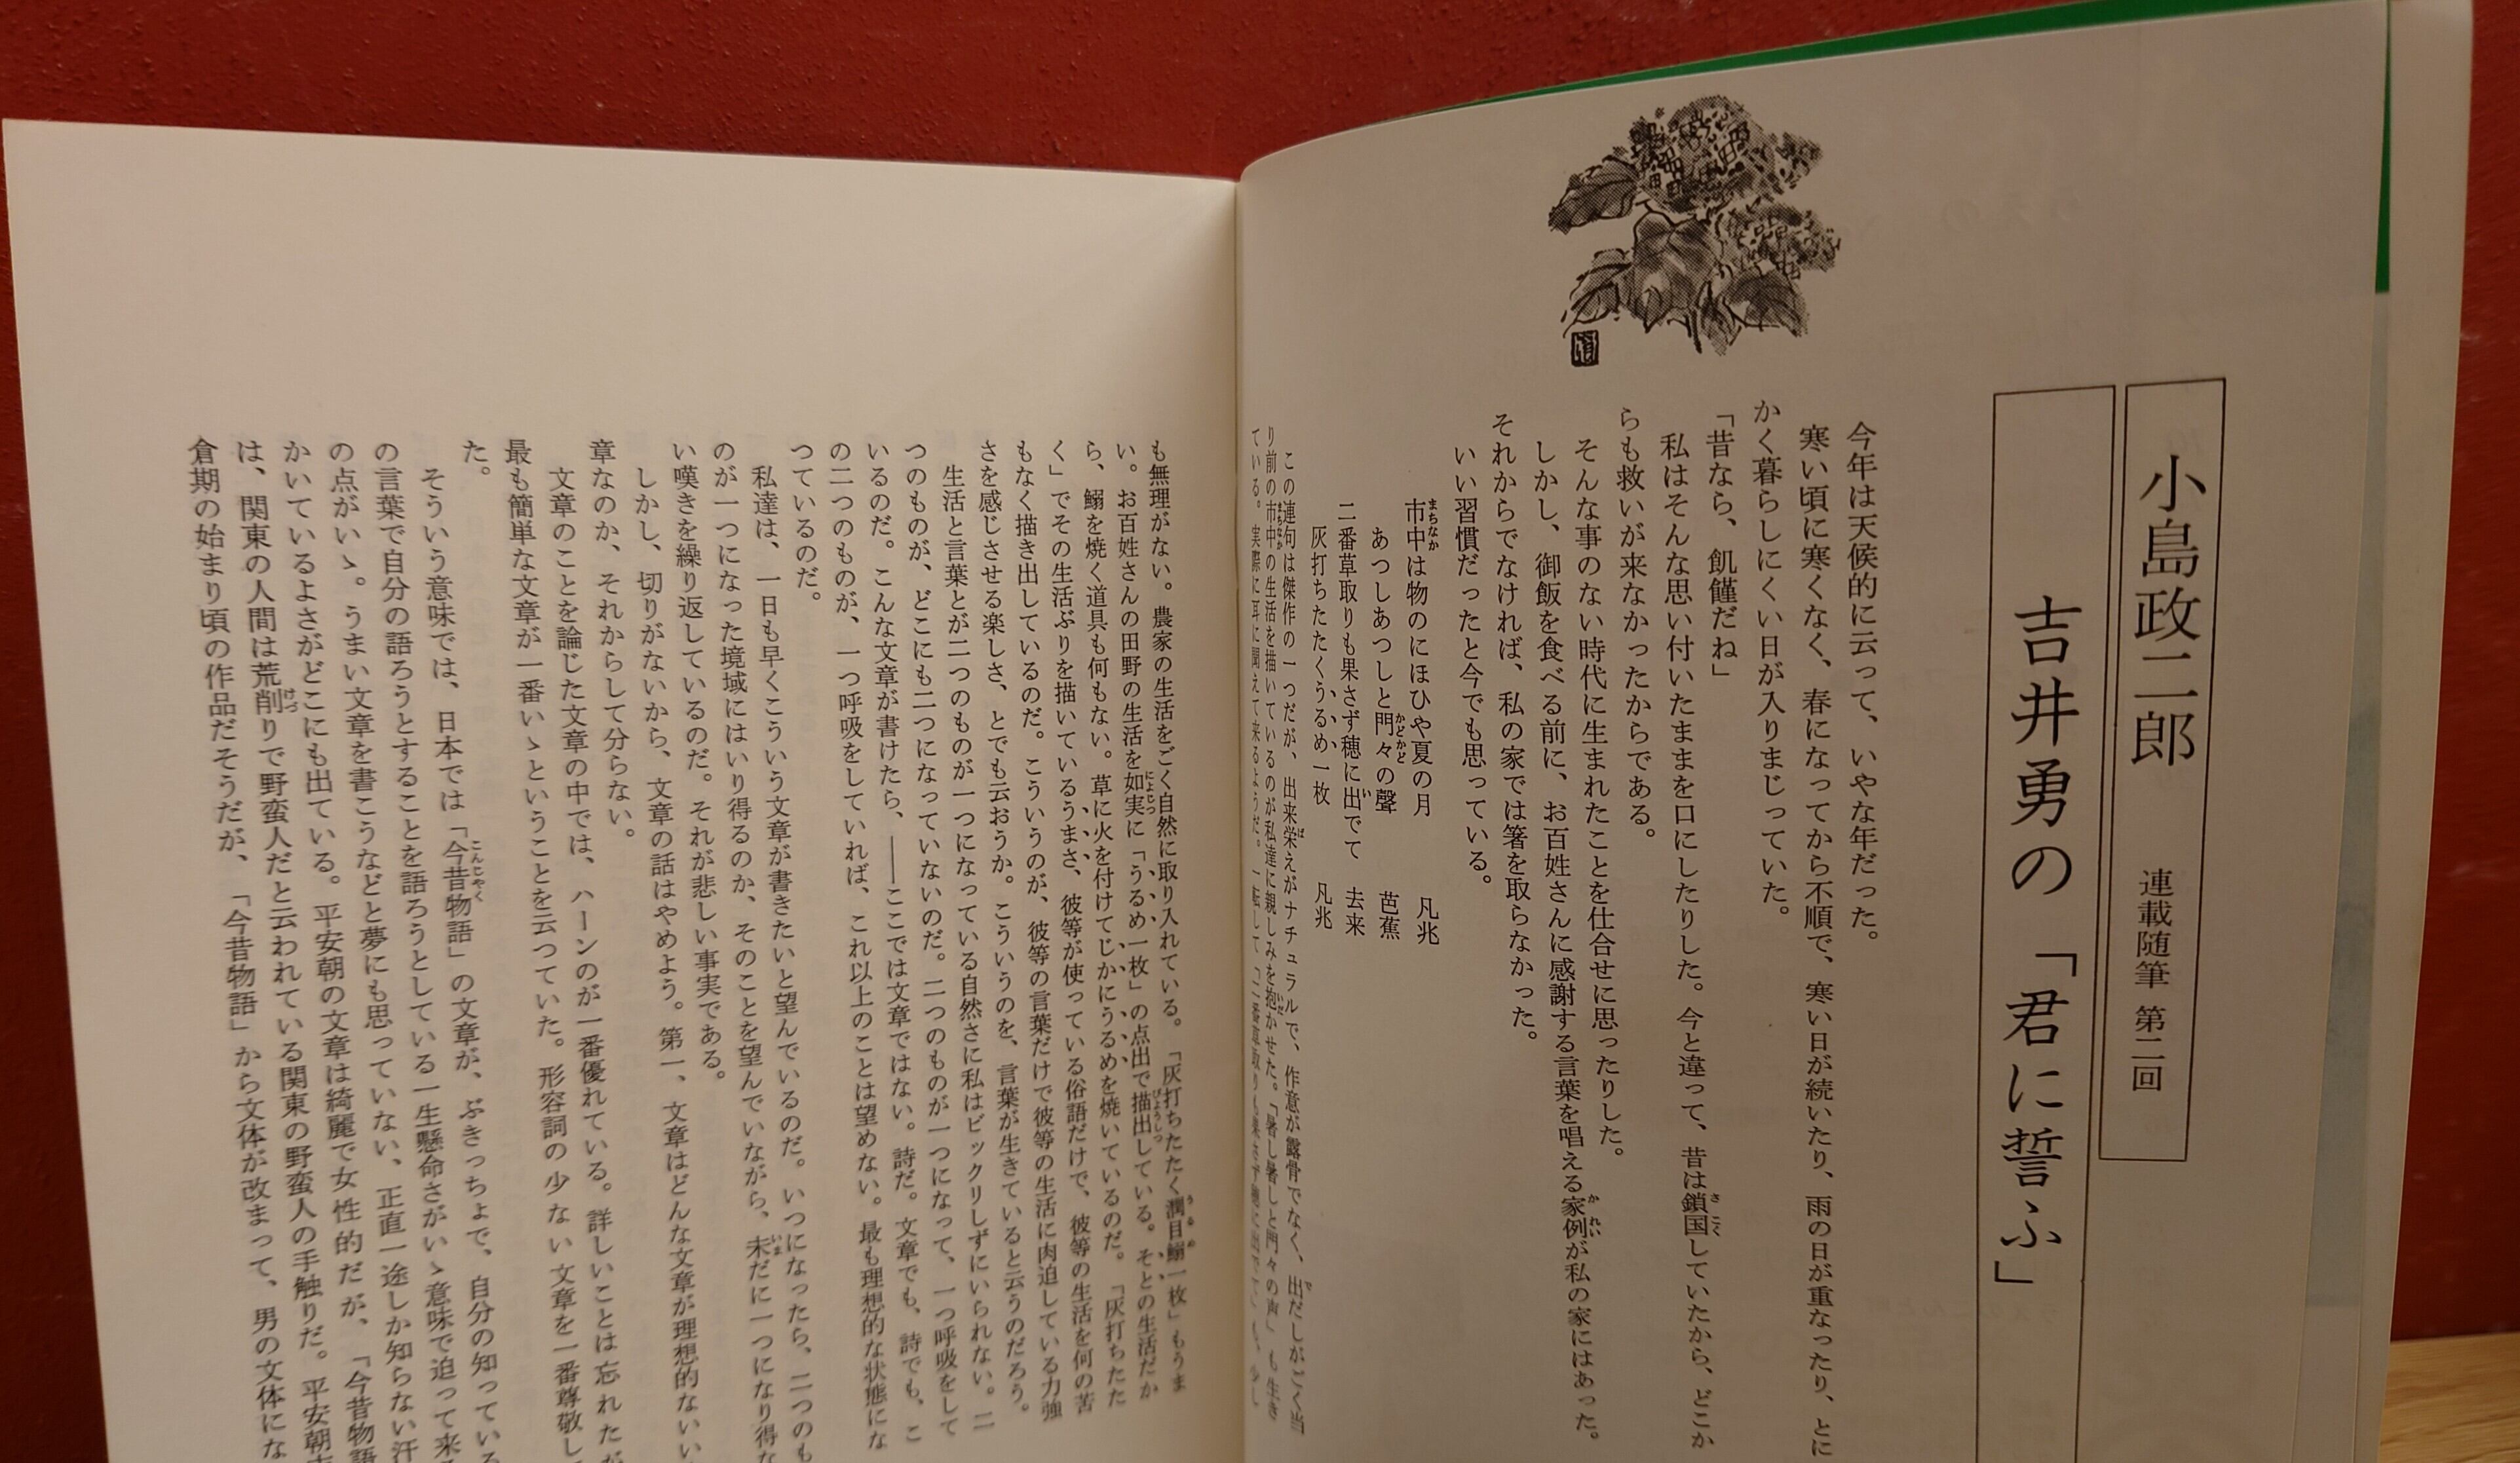 小島政二郎 連載随筆 第二回
吉井勇の「君に誓ふ」
今年は天候的に云って、いやな年だった。
寒い頃に寒くなく、春になってから不順で、寒い日が続いたり、雨の日が重なったり、とに
かく暮らしにくい日が入りまじっていた。
「昔なら、飢饉だね」
私はそんな思い付いたままを口にしたりした。今と違って、昔は鎖国していたから、どこか
らも救いが来なかったからである。
そんな事のない時代に生まれたことを仕合せに思ったりした。
しかし、御飯を食べる前に、お百姓さんに感謝する言葉を唱える家例が私の家にはあった。
それからでなければ、私の家では箸を取らなかった。
いい習慣だったと今でも思っている。
市中は物のにほひや夏の月 凡兆
あつしあつしと門々の聲 芭蕉
二番草取りも果さず穂に出でて 去来
灰打ちたたくうるめ一枚 凡兆
この連句は傑作の一つだが、出来栄えがナチュラルで、作意が露骨でなく、出だしがごく当
り前の市中の生活を描いているのが私達に親しみを抱かせた。「暑し暑しと門々の声」も生き
ている。実際に耳に聞えて来るようだ。一転して「二番草取りも果さず穂に出でて」
も無理がない。農家の生活をごく自然に取り入れている。「灰打ちたたく潤目鰯一枚」もうま
い。お百姓さんの田野の生活を如実に「うるめ一枚」の点出で描出している。そとの生活だか
ら、鰯を焼く道具も何もない。草に火を付けてじかにうるめを焼いているのだ。「灰打ちたた
く」でその生活ぶりを描いているうまさ、彼等が使っている俗語だけで、彼等の生活を何の苦
もなく描き出しているのだ。こういうのが、彼等の言葉だけで彼等の生活に肉迫している力強
さを感じさせる楽しさ、とでも云おうか。こういうのを、言葉が生きていると云うのだろう。
生活と言葉とが二つのものが一つになっている自然さに私はビックリしずにいられない。二
つのものが、どこにも二つになっていないのだ。二つのものが一つになって、一つ呼吸をして
いるのだ。こんな文章が書けたら、――ここでは文章ではない。詩だ。文章でも、詩でも、こ
の二つのものが、一つ呼吸をしていれば、これ以上のことは望めない。最も理想的な状態にな
っているのだ。
私達は、一日も早くこういう文章が書きたいと望んでいるのだ。いつになったら、二つのも
のが一つになった境域にはいり得るのか、そのことを望んでいながら、未だに一つになり得な
い嘆きを繰り返しているのだ。それが悲しい事実である。
しかし、切りがないから、文章の話はやめよう。第一、文章はどんな文章が理想的ないい
章なのか、それからして分らない。
文章のことを論じた文章の中では、ハーンのが一番優れている。詳しいことは忘れたが
最も簡単な文章が一番いゝということを云っていた。形容詞の少ない文章を一番尊敬し
た。
そういう意味では、日本では「今昔物語」の文章が、ぶきっちょで、自分の知っている
の言葉で自分の語ろうとすることを語ろうとしている一生懸命さがいゝ意味で迫って来
の点がいゝ。うまい文章を書こうなどと夢にも思っていない、正直一途しか知らない汗
かいているよさがどこにも出ている。平安朝の文章は綺麗で女性的だが、「今昔物語
は、関東の人間は荒削りで野蛮人だと云われている関東の野蛮人の手触りだ。平安朝
倉期の始まり頃の作品だそうだが、「今昔物語」から文体が改まって、男の文体にな